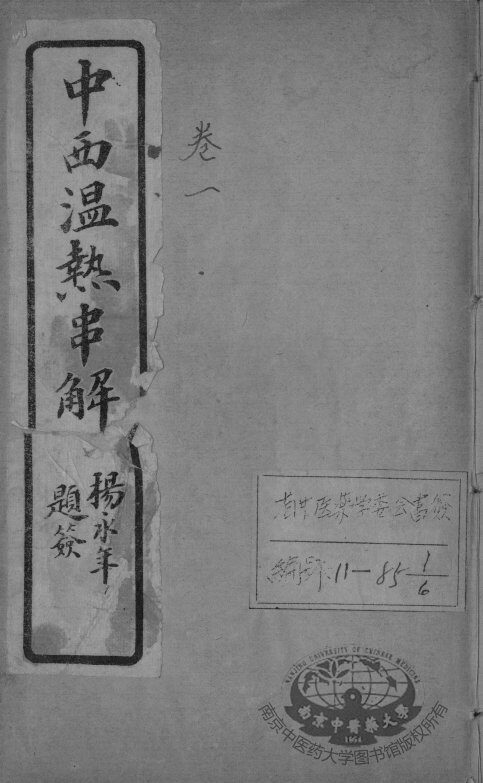 中西温熱串解
楊永年
題簽
卷一
医药学委会書籤
編號 11—85 1/6
NANJING UNIVERSITY OF CHINESE MEDICINE
南京中醫藥大學
1954
南京中医药大学图书馆版权所有